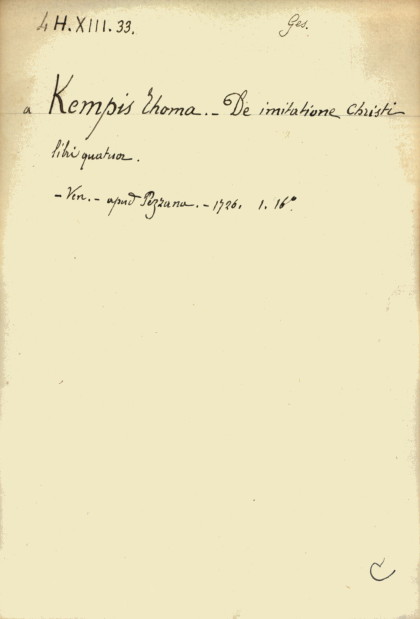 4 H.XIII.33. Ges.
a Kempis Thoma. - De imitatione Christi
libri quatuor.
- Ven. - apud Pezzana. - 1726. 1. 16º.